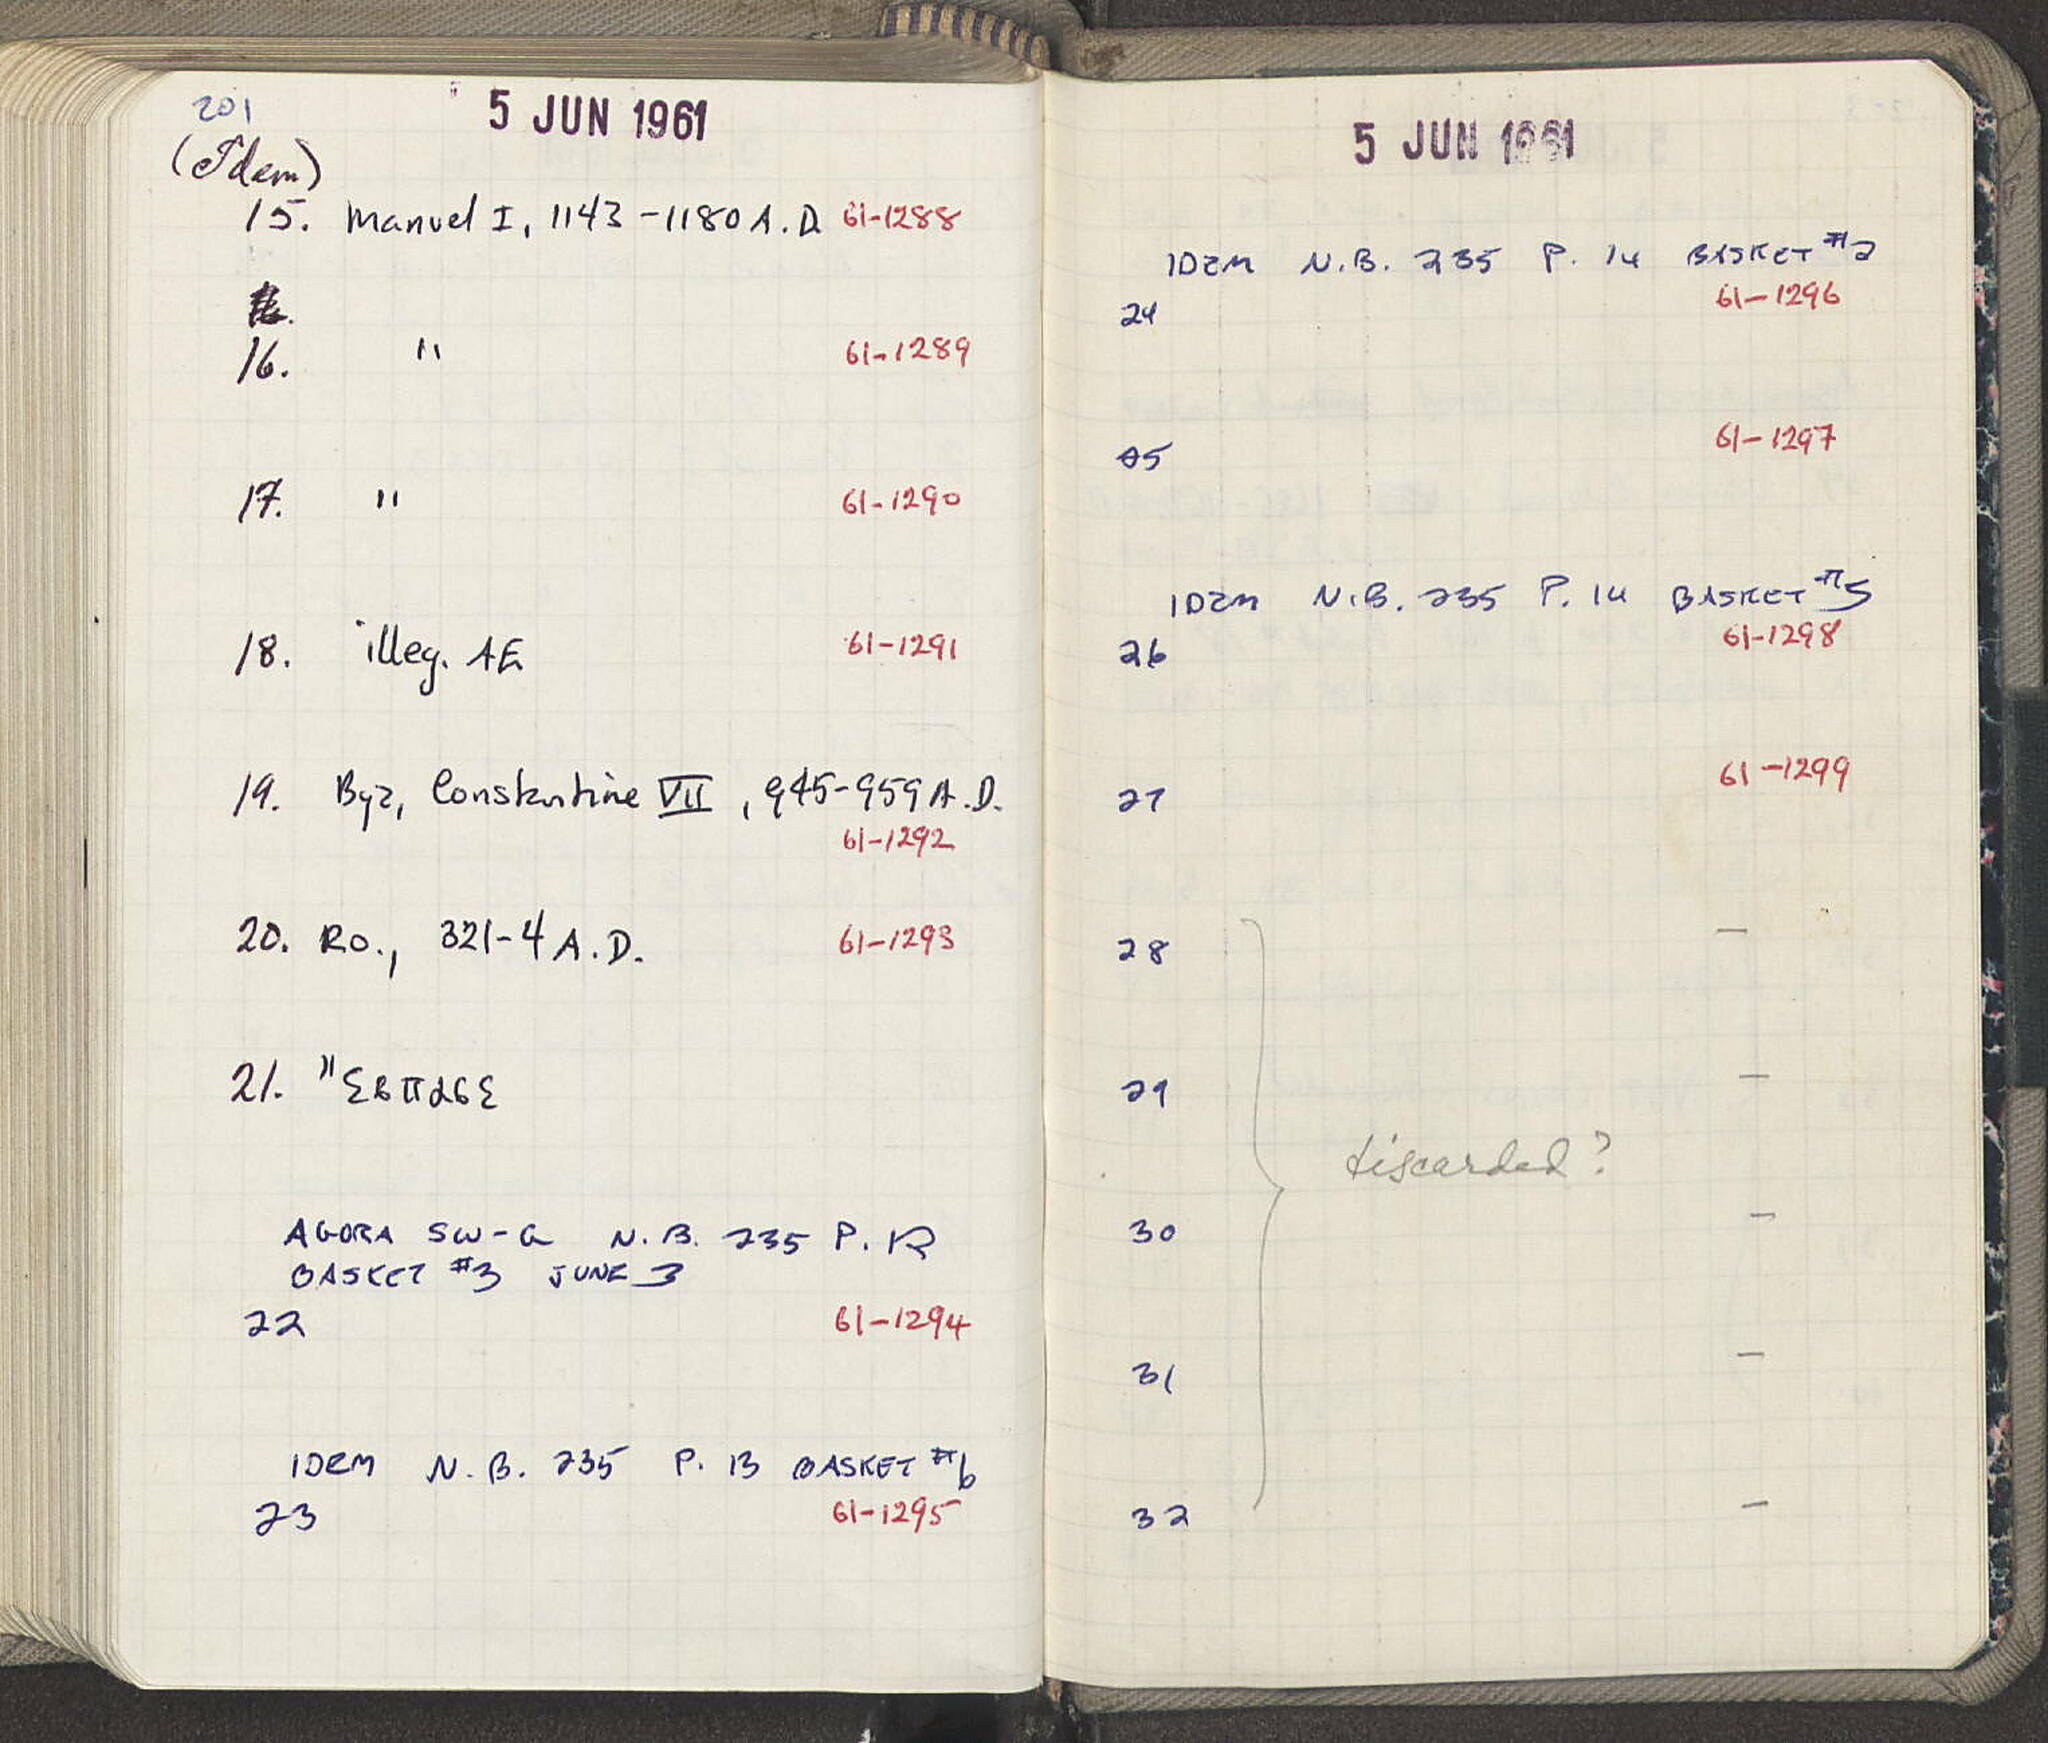 201
5 JUN 1961
(Idem)
15. Manuel I, 1143-1180 A.D. 61-1288
16. " 61-1289
17. " 61-1290
18. illeg. AE 61-1291
19. Byz, Constantine VII, 945-959 A.D.
61-1292
20. Ro., 321-4 A.D. 61-1293
21. "
AGORA SW-G N.B. 235 P. 12
BASKET #3 JUNE 3
22 61-1294
IDEM N.B. 235 P. 13 BASKET #6
23 61-1295
5 JUN 1961
IDEM N.B. 235 P. 14 BASKET #2
24 61-1296
25 61-1297
IDEM N.B. 235 P. 14 BASKET #5
26 61-1298
27 61-1299
28 —
29 —
discarded?
30 —
31 —
32 —